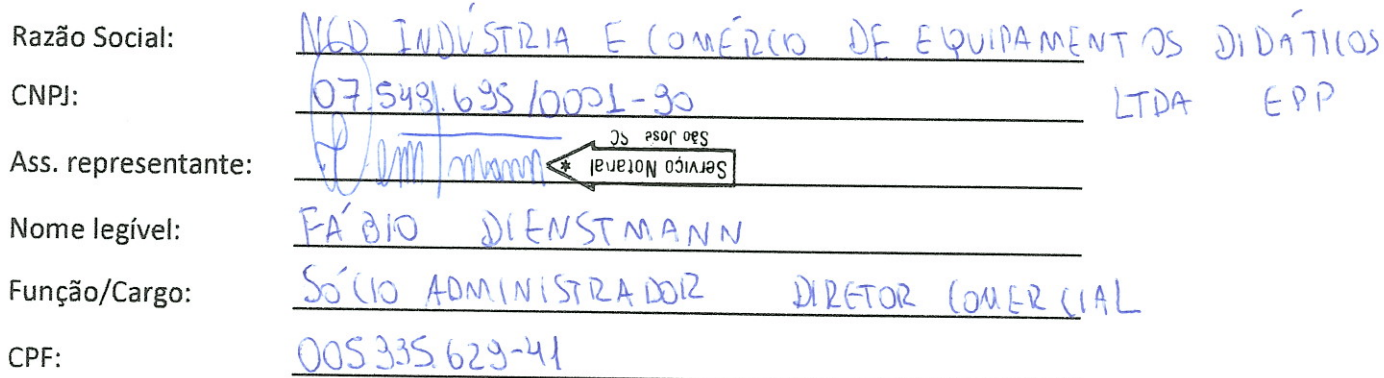 Razão Social: NGD INDÚSTRIA E COMÉRCIO DE EQUIPAMENTOS DIDÁTICOS
CNPJ: 07.549.695/0001-90 LTDA EPP
São José SC
Ass. representante: * Serviço Notarial
Nome legível: FÁBIO DIENSTMANN
Função/Cargo: SÓCIO ADMINISTRADOR DIRETOR COMERCIAL
CPF: 005.935.629-41